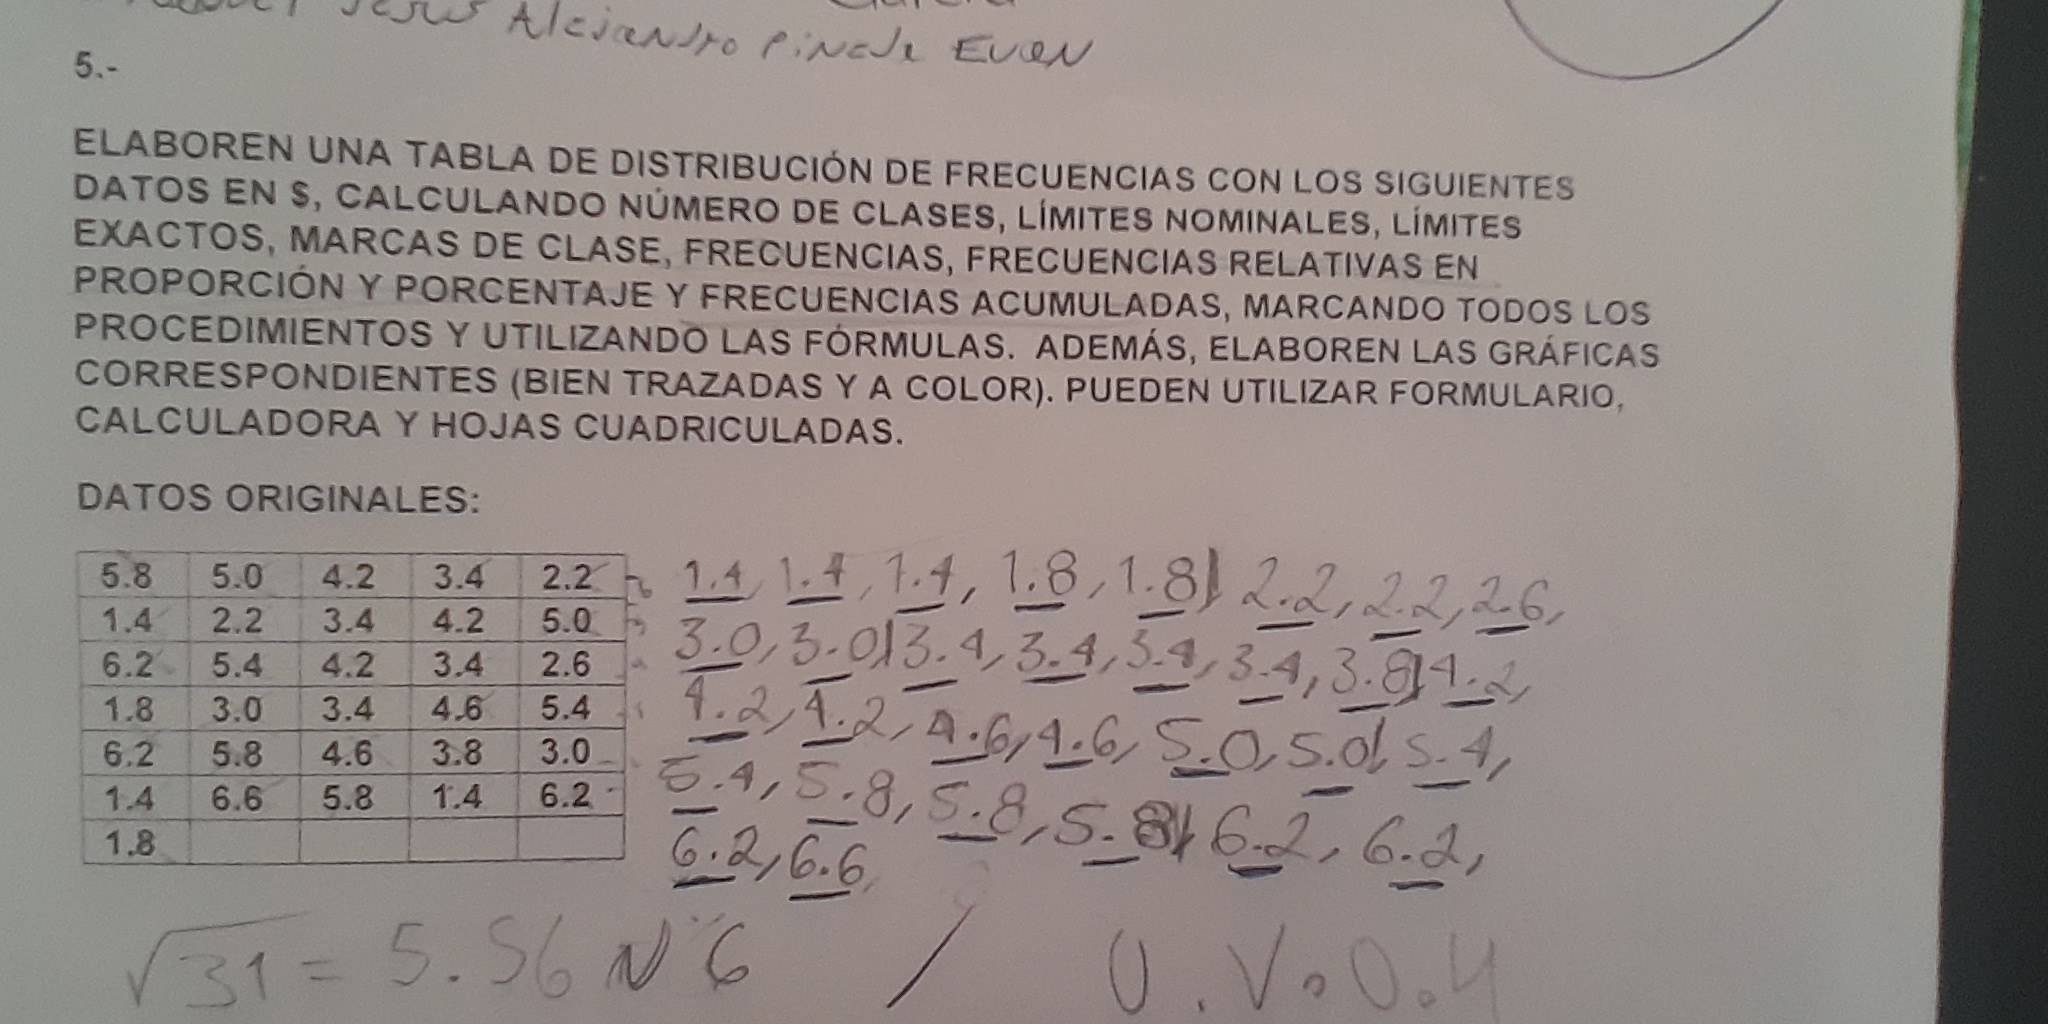 Jesus Alejandro Pineda Evan
5.-
ELABOREN UNA TABLA DE DISTRIBUCIÓN DE FRECUENCIAS CON LOS SIGUIENTES
DATOS EN $, CALCULANDO NÚMERO DE CLASES, LÍMITES NOMINALES, LÍMITES
EXACTOS, MARCAS DE CLASE, FRECUENCIAS, FRECUENCIAS RELATIVAS EN
PROPORCIÓN Y PORCENTAJE Y FRECUENCIAS ACUMULADAS, MARCANDO TODOS LOS
PROCEDIMIENTOS Y UTILIZANDO LAS FÓRMULAS. ADEMÁS, ELABOREN LAS GRÁFICAS
CORRESPONDIENTES (BIEN TRAZADAS Y A COLOR). PUEDEN UTILIZAR FORMULARIO,
CALCULADORA Y HOJAS CUADRICULADAS.
DATOS ORIGINALES:
5.8 5.0 4.2 3.4 2.2
1.4 2.2 3.4 4.2 5.0
6.2 5.4 4.2 3.4 2.6
1.8 3.0 3.4 4.6 5.4
6.2 5.8 4.6 3.8 3.0
1.4 6.6 5.8 1.4 6.2
1.8
1.4, 1.4, 1.4, 1.8, 1.8) 2.2, 2.2, 2.6,
3.0, 3.0) 3.4, 3.4, 3.4, 3.4, 3.8) 4.2,
4.2, 4.2, 4.6, 4.6, 5.0, 5.0) 5.4,
5.4, 5.8, 5.8, 5.8) 6.2, 6.2,
6.2, 6.6,
√31 = 5.56 N 6 / U.V. 0.4